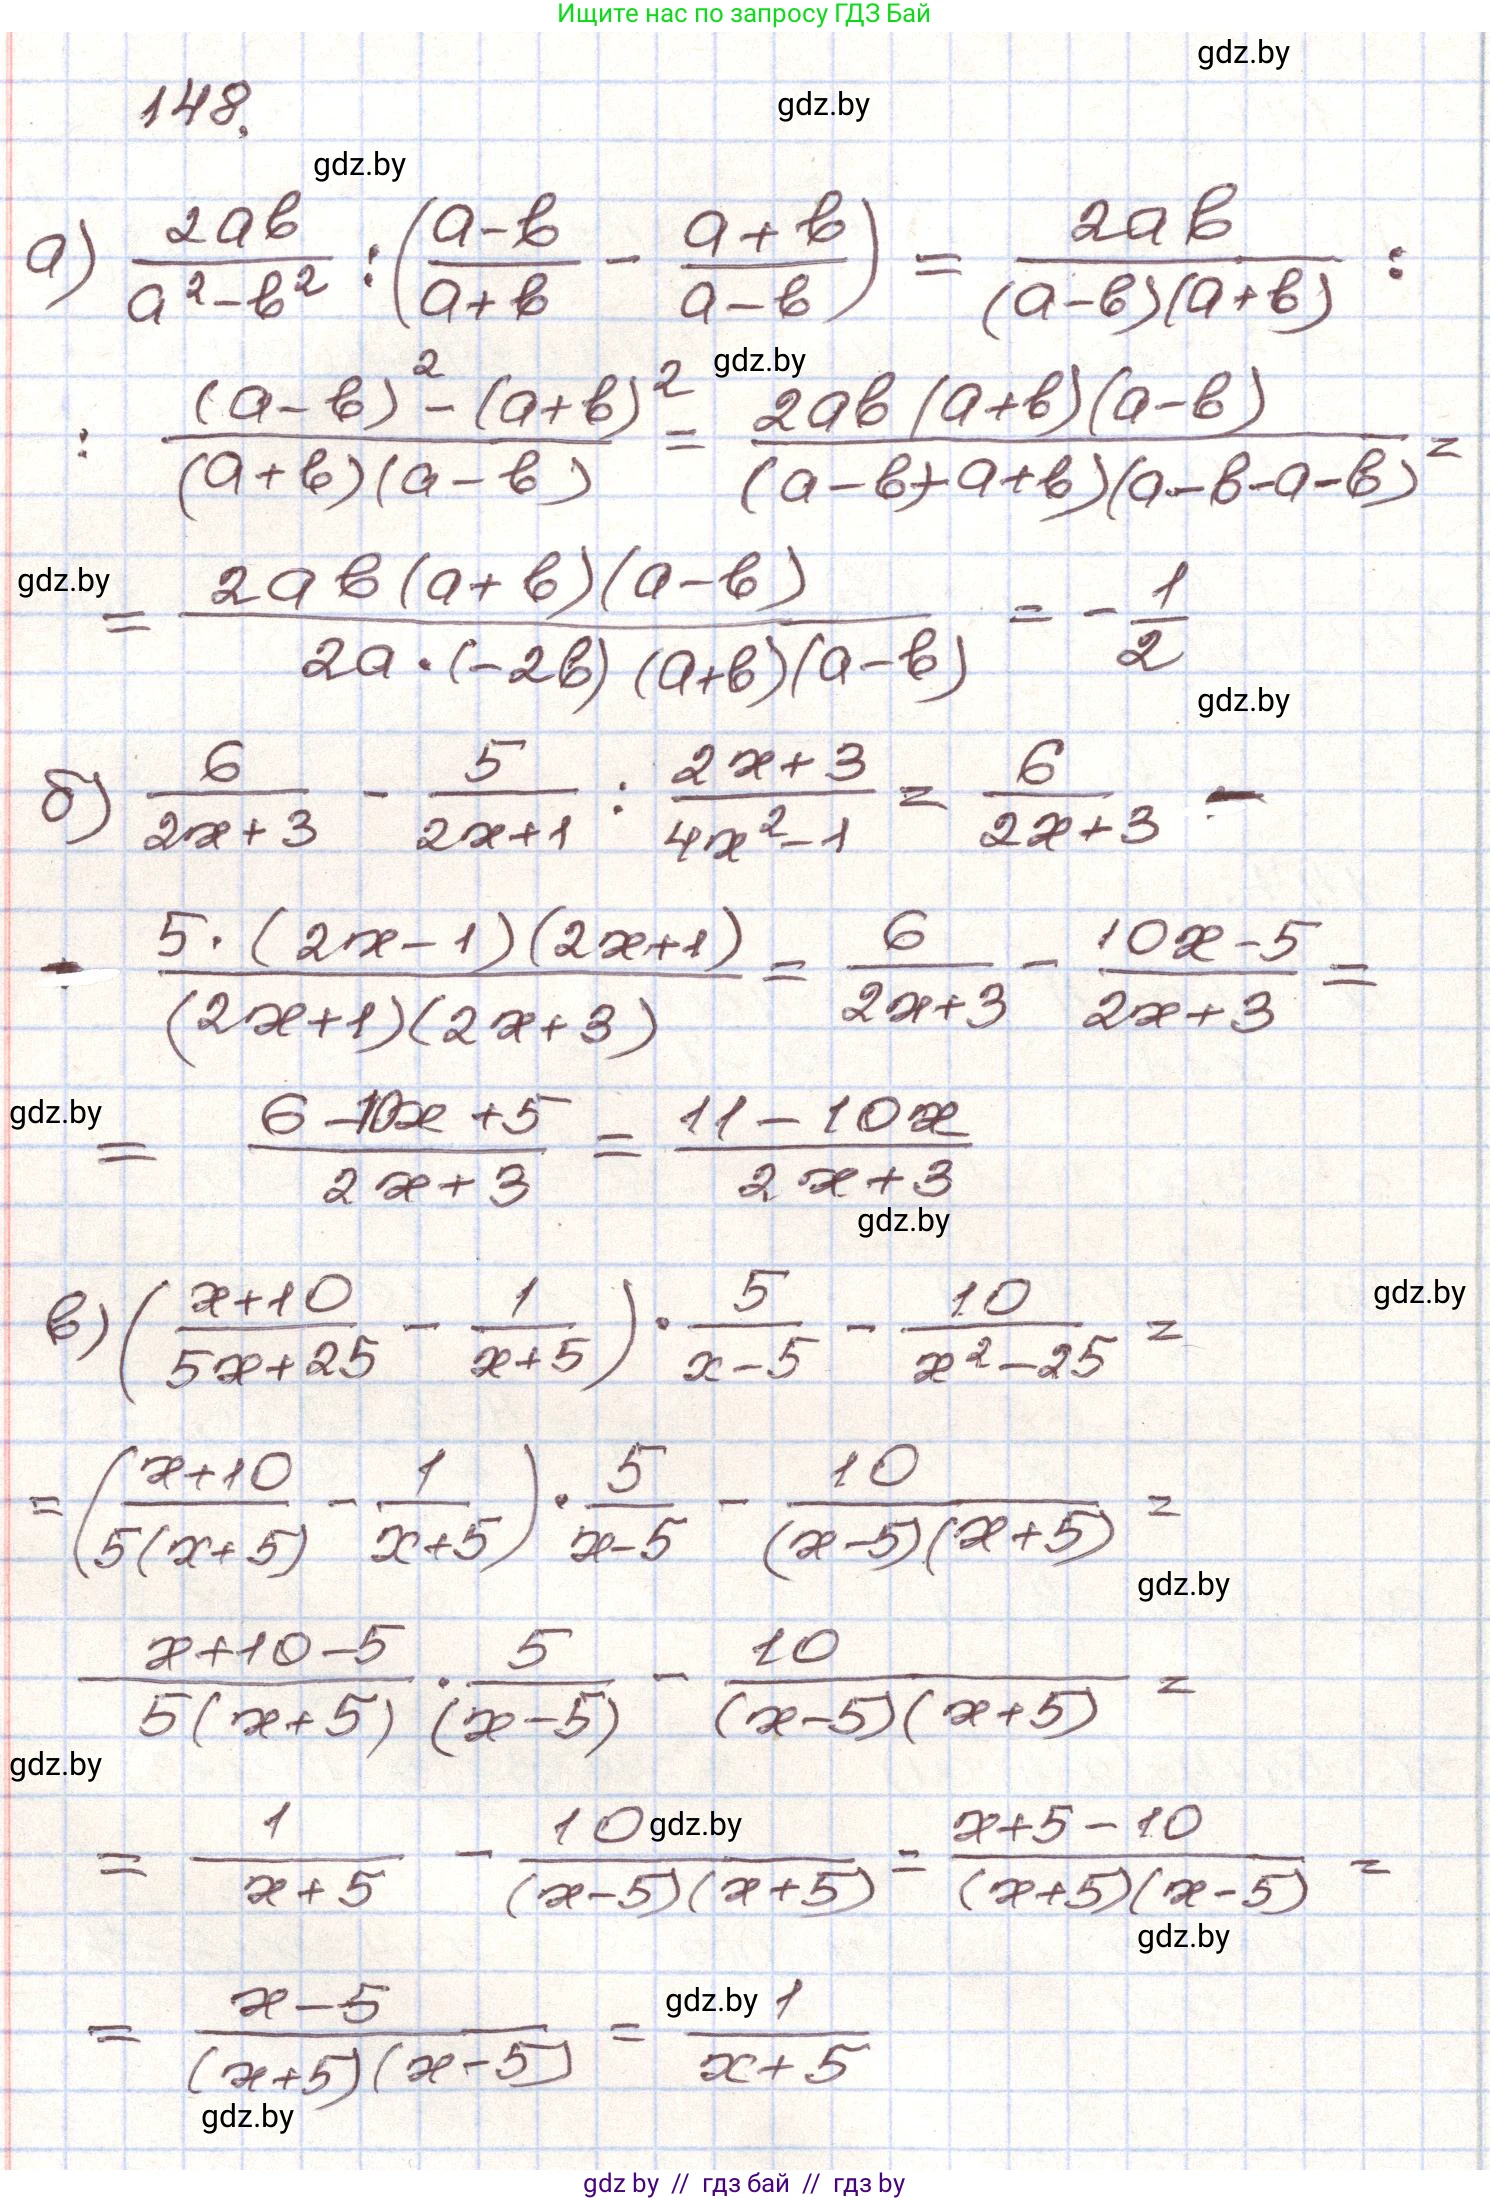 Ищите нас по запросу ГДЗ Бай
gdz.by
148.
gdz.by
gdz.by
а) 2ab/(a²-b²) : ((a-b)/(a+b) - (a+b)/(a-b)) = 2ab/((a-b)(a+b)) :
gdz.by
: ((a-b)² - (a+b)²)/((a+b)(a-b)) = 2ab(a+b)(a-b)/((a-b+a+b)(a-b-a-b)) =
gdz.by
= 2ab(a+b)(a-b)/(2a·(-2b)(a+b)(a-b)) = -1/2
gdz.by
б) 6/(2x+3) - 5/(2x+1) : (2x+3)/(4x²-1) = 6/(2x+3) -
- 5·(2x-1)(2x+1)/((2x+1)(2x+3)) = 6/(2x+3) - (10x-5)/(2x+3) =
gdz.by
= (6-10x+5)/(2x+3) = (11-10x)/(2x+3)
gdz.by
gdz.by
в) ((x+10)/(5x+25) - 1/(x+5)) · 5/(x-5) - 10/(x²-25) =
= ((x+10)/(5(x+5)) - 1/(x+5)) · 5/(x-5) - 10/((x-5)(x+5)) =
gdz.by
(x+10-5)/(5(x+5)) · 5/(x-5) - 10/((x-5)(x+5)) =
gdz.by
gdz.by
= 1/(x+5) - 10/((x-5)(x+5)) = (x+5-10)/((x+5)(x-5)) =
gdz.by
gdz.by
= (x-5)/((x+5)(x-5)) = 1/(x+5)
gdz.by
gdz by // гдз бай // гдз by